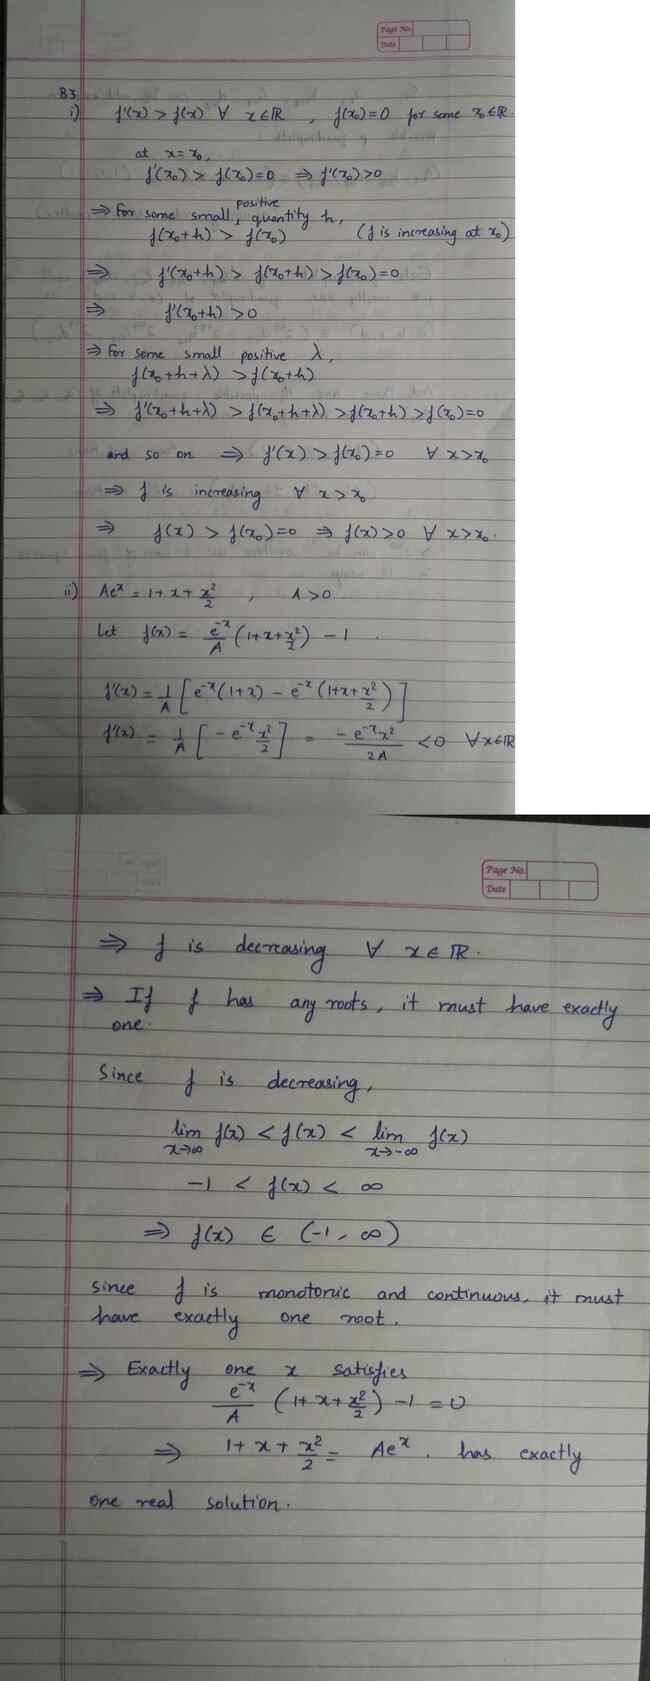 Page No.
Date
B3
i) f'(x) > f(x) ∀ x∈ℝ , f(x₀)=0 for some x₀∈ℝ.
at x=x₀,
f'(x₀) > f(x₀)=0 ⇒ f'(x₀)>0
⇒ For some small, positive quantity h,
f(x₀+h) > f(x₀) (f is increasing at x₀)
⇒ f'(x₀+h) > f(x₀+h) > f(x₀)=0
⇒ f'(x₀+h) >0
⇒ For some small positive λ,
f(x₀+h+λ) > f(x₀+h)
⇒ f'(x₀+h+λ) > f(x₀+h+λ) > f(x₀+h) > f(x₀)=0
and so on ⇒ f'(x) > f(x₀)=0 ∀ x>x₀
⇒ f is increasing ∀ x>x₀
⇒ f(x) > f(x₀)=0 ⇒ f(x)>0 ∀ x>x₀.
ii) Aeˣ = 1+x+x²/2 , A>0
Let f(x) = e⁻ˣ/A (1+x+x²/2) - 1.
f'(x) = 1/A [e⁻ˣ(1+x) - e⁻ˣ(1+x+x²/2)]
f'(x) = 1/A [-e⁻ˣ x²/2] = -e⁻ˣx²/2A <0 ∀x∈ℝ
Page No.
Date
⇒ f is decreasing ∀ x∈ℝ.
⇒ If f has any roots, it must have exactly
one.
Since f is decreasing,
lim x→∞ f(x) < f(x) < lim x→-∞ f(x)
-1 < f(x) < ∞
⇒ f(x) ∈ (-1, ∞)
Since f is monotonic and continuous, it must
have exactly one root.
⇒ Exactly one x satisfies
e⁻ˣ/A (1+x+x²/2) -1 = 0
⇒ 1+x+x²/2 = Aeˣ. has exactly
one real solution.